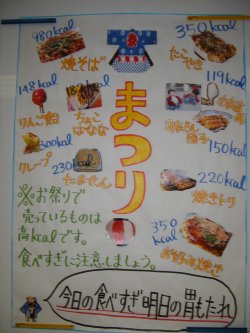 980kcal
焼そば
350kcal
たこ
やき
148kcal
りんご飴
ちょこ
ばなな
119kcal
みたらし
団子
150kcal
300kcal
クレープ
230kcal
たません
220kcal
焼きトリ
350
kcal
お好み焼き
まつり
※お祭りで
売っているものは
高kcalです。
食べすぎに注意しましょう。
今日の食べすぎ明日の胃もたれ